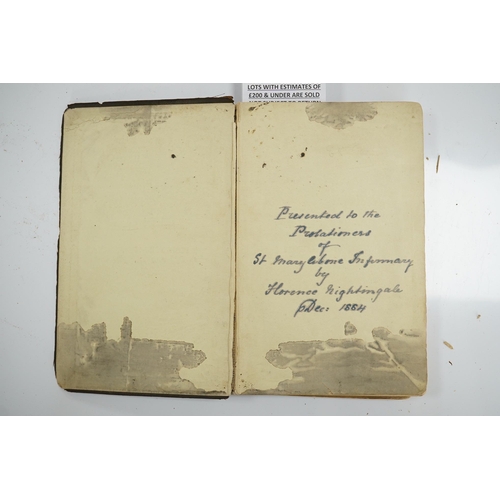 LOTS WITH ESTIMATES OF
£200 & UNDER ARE SOLD
NOT SUBJECT TO RETURN
Presented to the
Probationers
of
St Marylebone Infirmary
by
Florence Nightingale
Dec: 1884